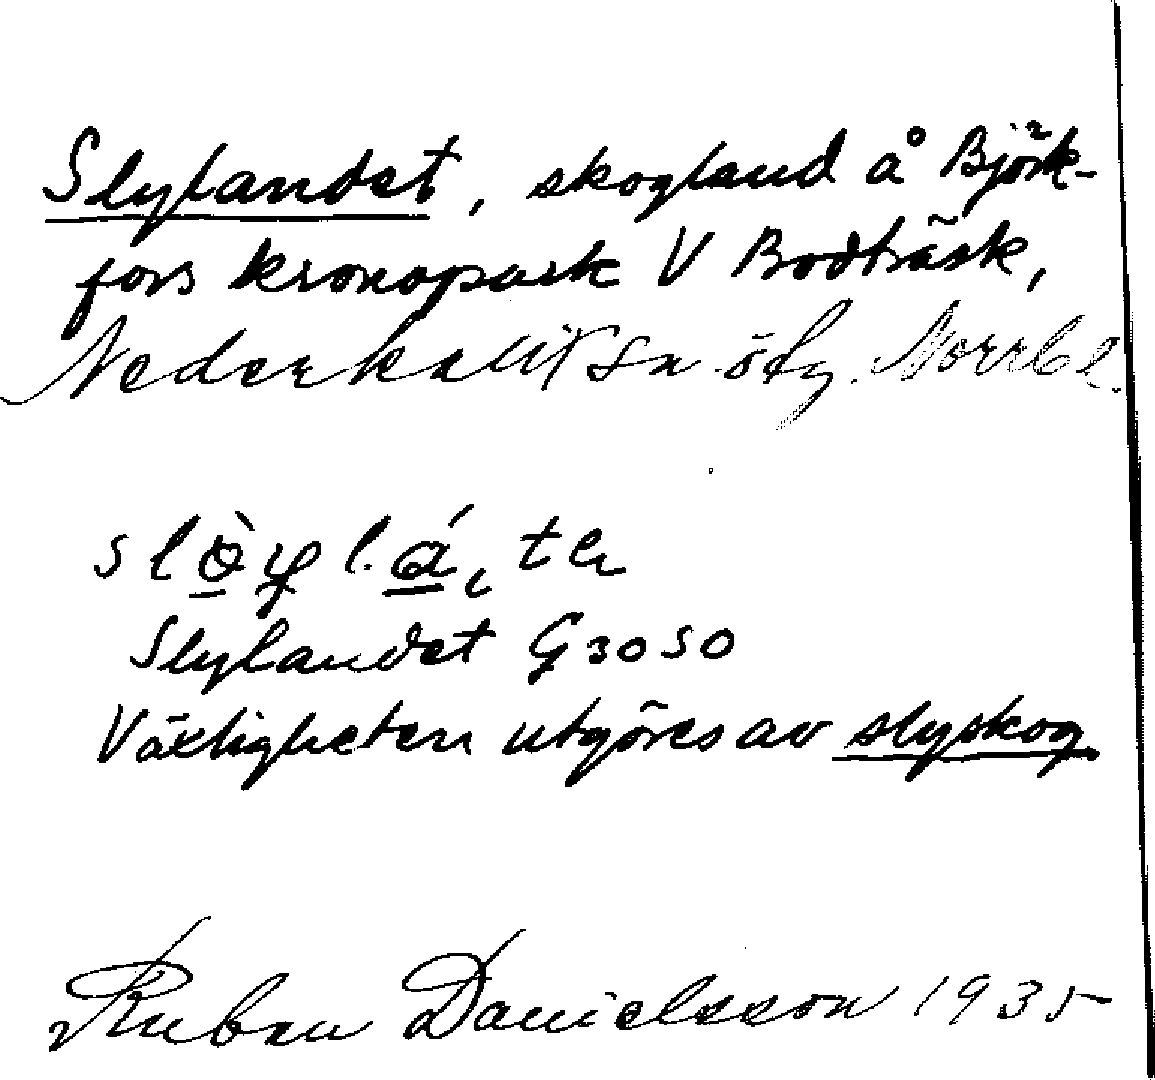 Slylandet, skogland å Björk-
fors kronopark V Bodträsk,
Nederkalix sn Norrb l.
Slylandet G3050
Växtligheten utgöres av slyskog
Ruben Danielsson 1935